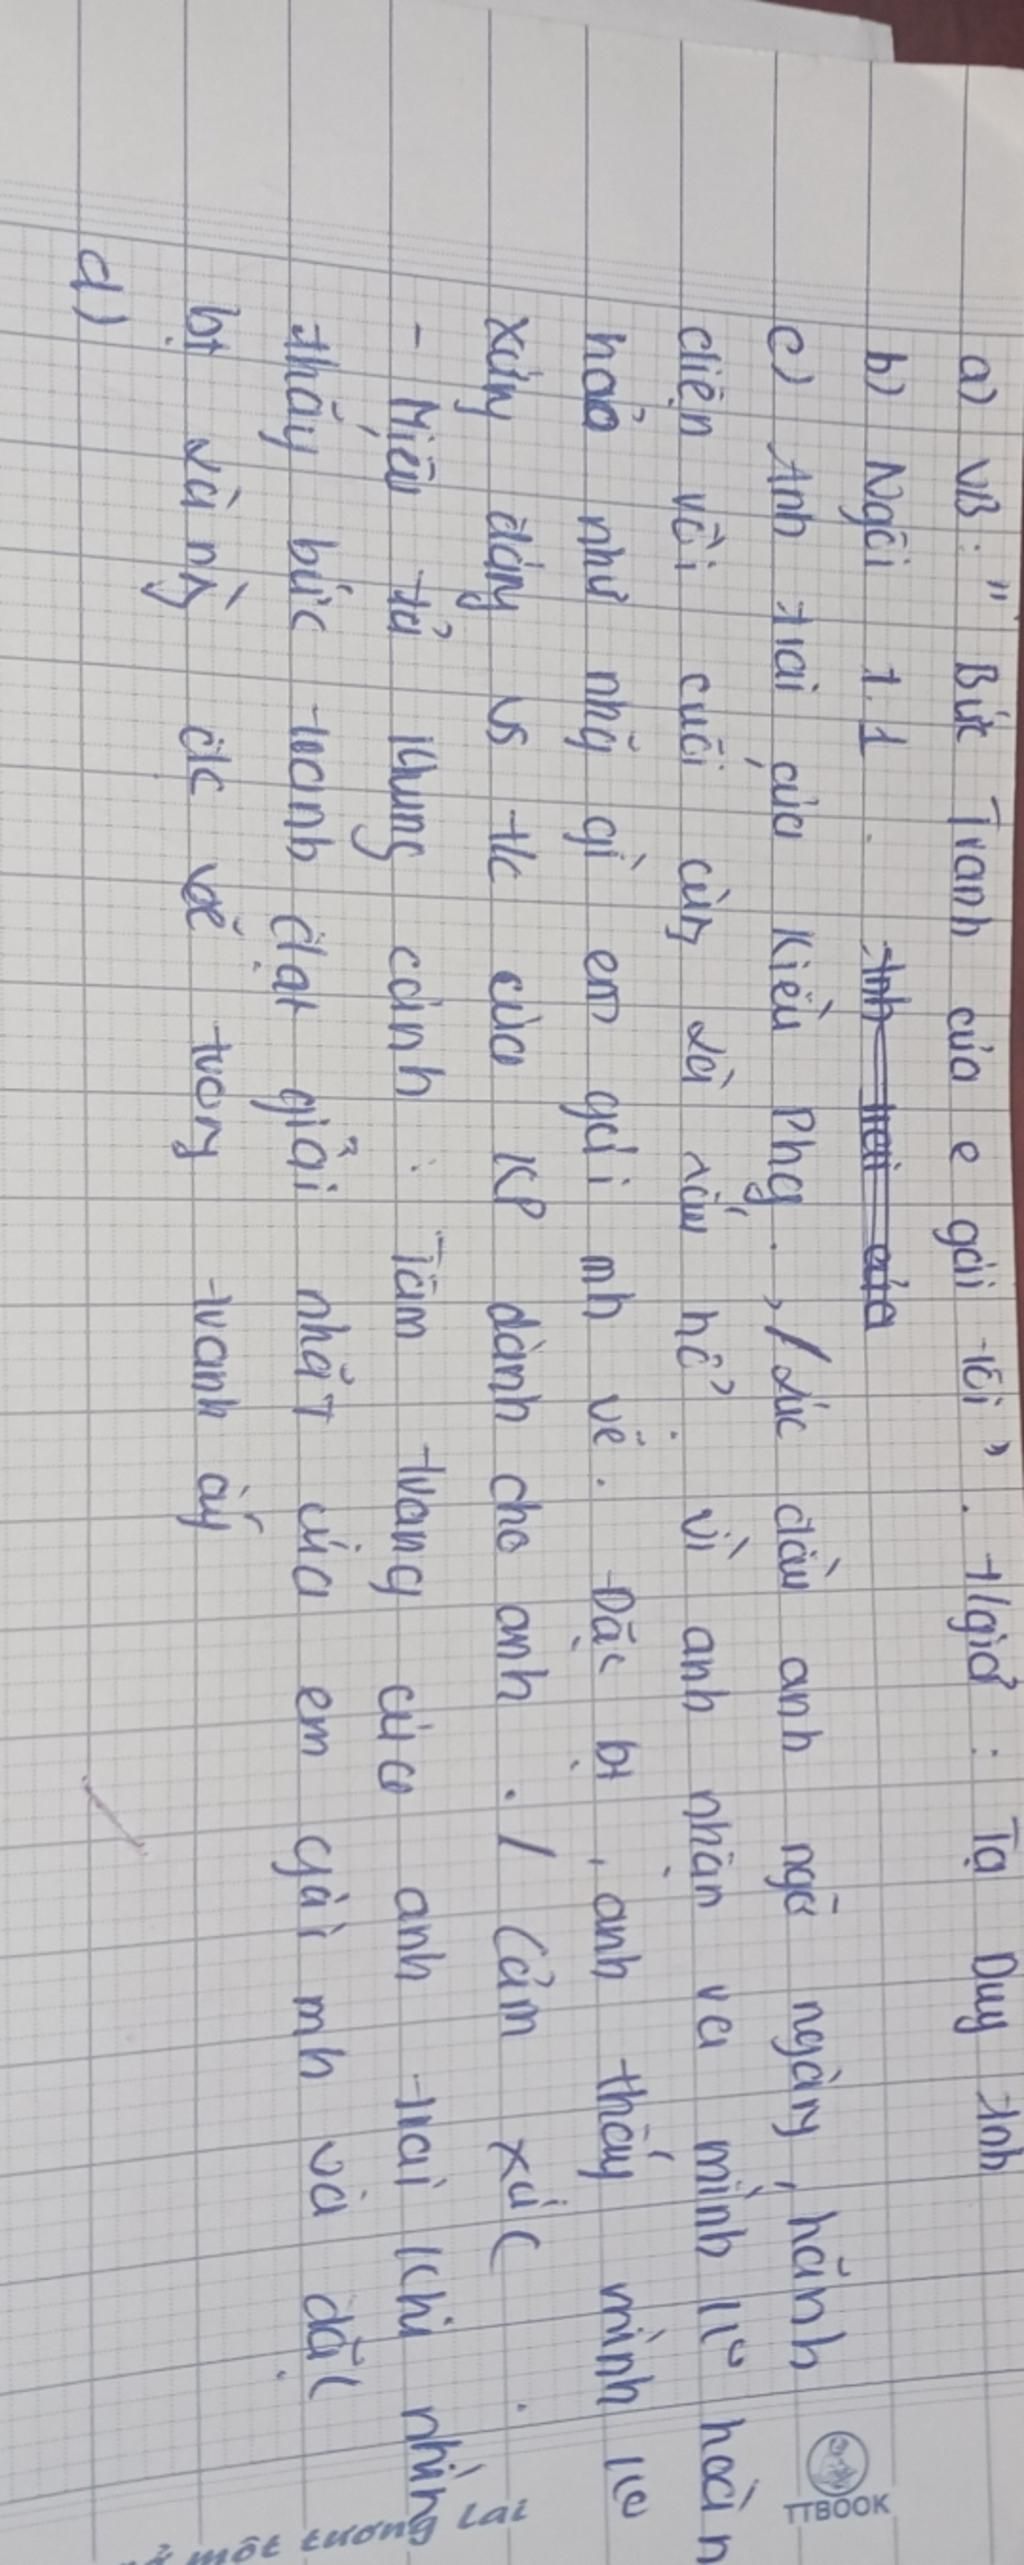 a) VB: " Bức Tranh của e gái tôi " . T/giả : Tạ Duy Anh
b) Ngôi T.1 . Anh trai của
c) Anh trai của Kiều Phg. , / Lúc đầu anh ngỡ ngàng, hãnh
diện rồi cuối cùng là xấu hổ. Vì anh nhận ra mình k hoàn
hảo như nhg gì em gái mh vẽ. Đặc bt, anh thấy mình k
xứng đáng vs t/c của KP dành cho anh. / Cảm xúc.
- Miêu tả khung cảnh : Tâm trạng của anh trai khi nhìn
thấy bức tranh đạt giải nhất của em gái mh và đặc
bt là ng đc vẽ trong tranh ấy
d)
TTBOOK
một tương lai